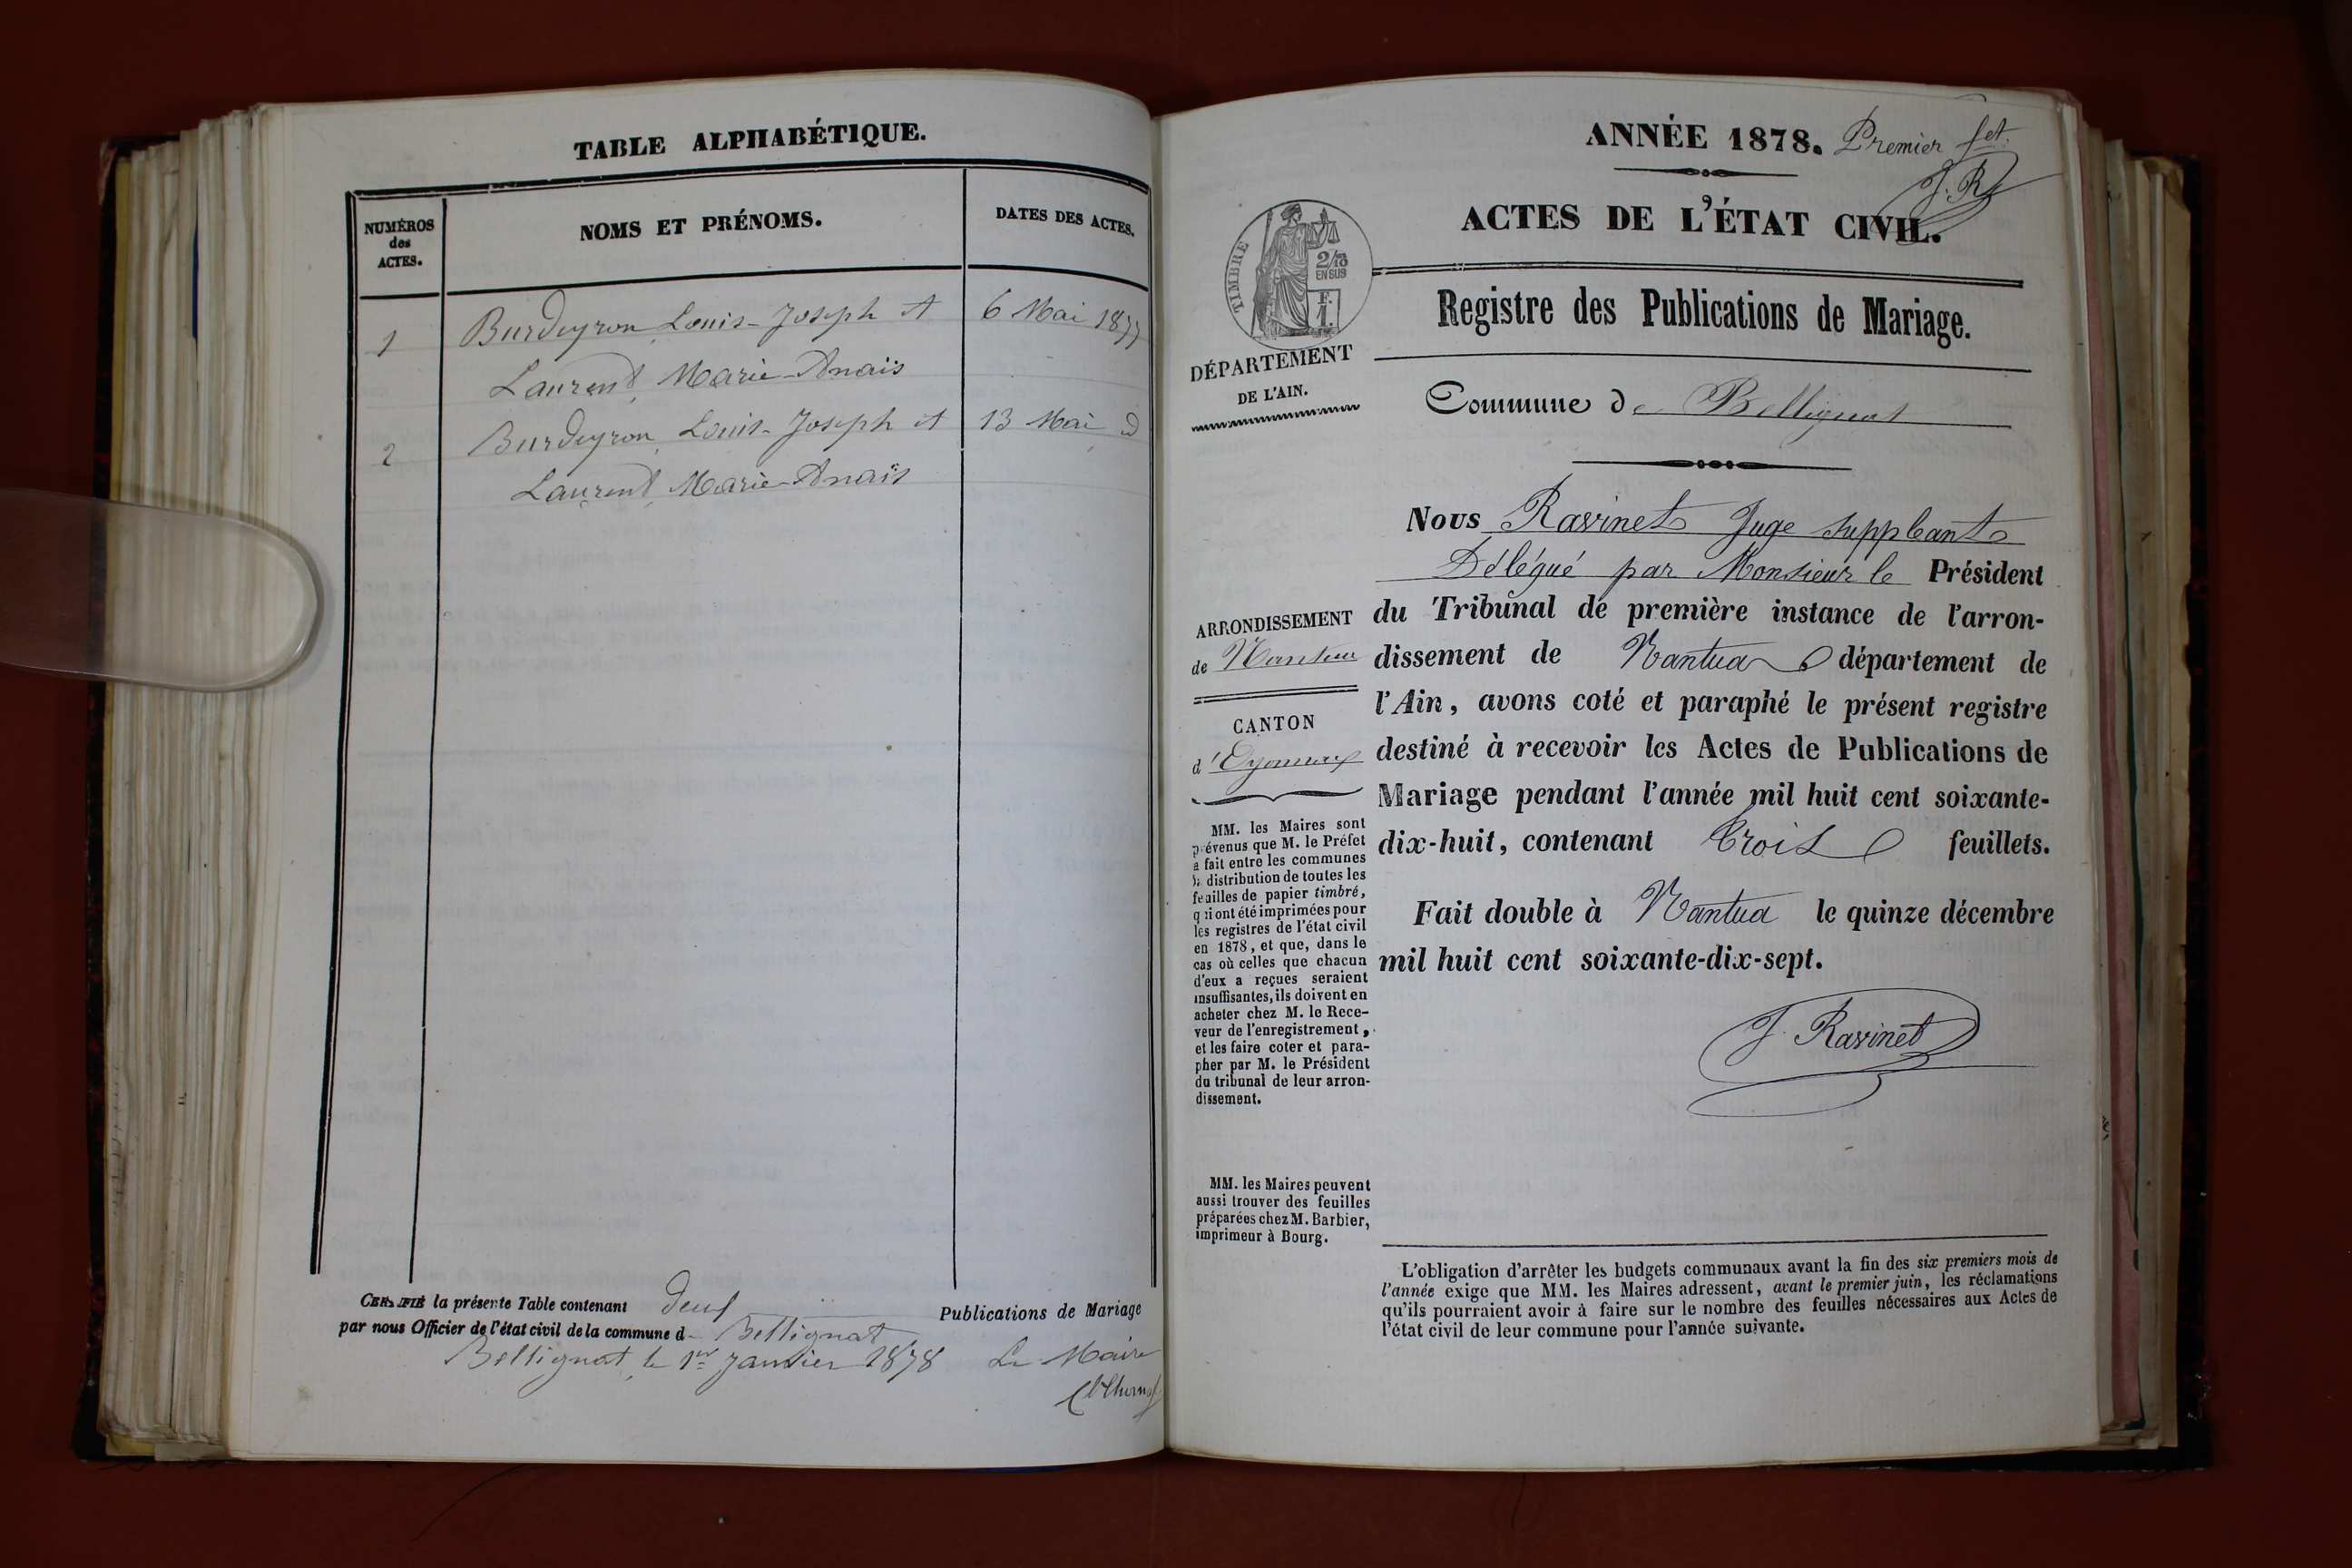 TABLE ALPHABÉTIQUE.
NUMÉROS
des
ACTES.
NOMS ET PRÉNOMS.
DATES DES ACTES.
1 Burdeyron, Louis-Joseph et 6 Mai 1877
Laurent, Marie-Anaïs
2 Burdeyron, Louis-Joseph et 13 Mai d
Laurent, Marie-Anaïs
CERTIFIÉ la présente Table contenant deux Publications de Mariage
par nous Officier de l'état civil de la commune d- Bellignat
Bellignat, le 1er Janvier 1878 Le Maire
ANNÉE 1878. Premier fet.
J. R
ACTES DE L'ÉTAT CIVIL.
TIMBRE
2/10
EN SUS
F.
1.
Registre des Publications de Mariage.
DÉPARTEMENT
DE L'AIN.
Commune de Bellignat
Nous Ravinet Juge suppléant
Délégué par Monsieur le Président
du Tribunal de première instance de l'arron-
dissement de Nantua département de
l'Ain, avons coté et paraphé le présent registre
destiné à recevoir les Actes de Publications de
Mariage pendant l'année mil huit cent soixante-
dix-huit, contenant trois feuillets.
Fait double à Nantua le quinze décembre
mil huit cent soixante-dix-sept.
J. Ravinet
ARRONDISSEMENT
de Nantua
CANTON
d'Oyonnax
MM. les Maires sont
prévenus que M. le Préfet
a fait entre les communes
la distribution de toutes les
feuilles de papier timbré,
qui ont été imprimées pour
les registres de l'état civil
en 1878, et que, dans le
cas où celles que chacun
d'eux a reçues seraient
insuffisantes, ils doivent en
acheter chez M. le Rece-
veur de l'enregistrement,
et les faire coter et para-
pher par M. le Président
du tribunal de leur arron-
dissement.
MM. les Maires peuvent
aussi trouver des feuilles
préparées chez M. Barbier,
imprimeur à Bourg.
L'obligation d'arrêter les budgets communaux avant la fin des six premiers mois de
l'année exige que MM. les Maires adressent, avant le premier juin, les réclamations
qu'ils pourraient avoir à faire sur le nombre des feuilles nécessaires aux Actes de
l'état civil de leur commune pour l'année suivante.